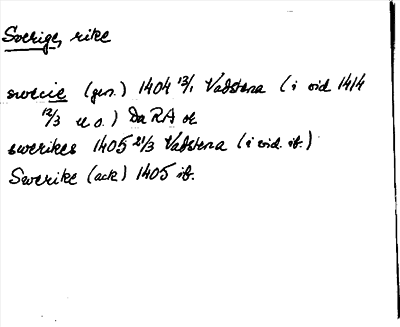 Sverige, rike
swecie (gen.) 1404 13/1 Vadstena (i vid 1414
12/3 u.o.) Da RA or
swerikes 1405 21/3 Vadstena (i vid. ib.)
Swerike (ack) 1405 ib.